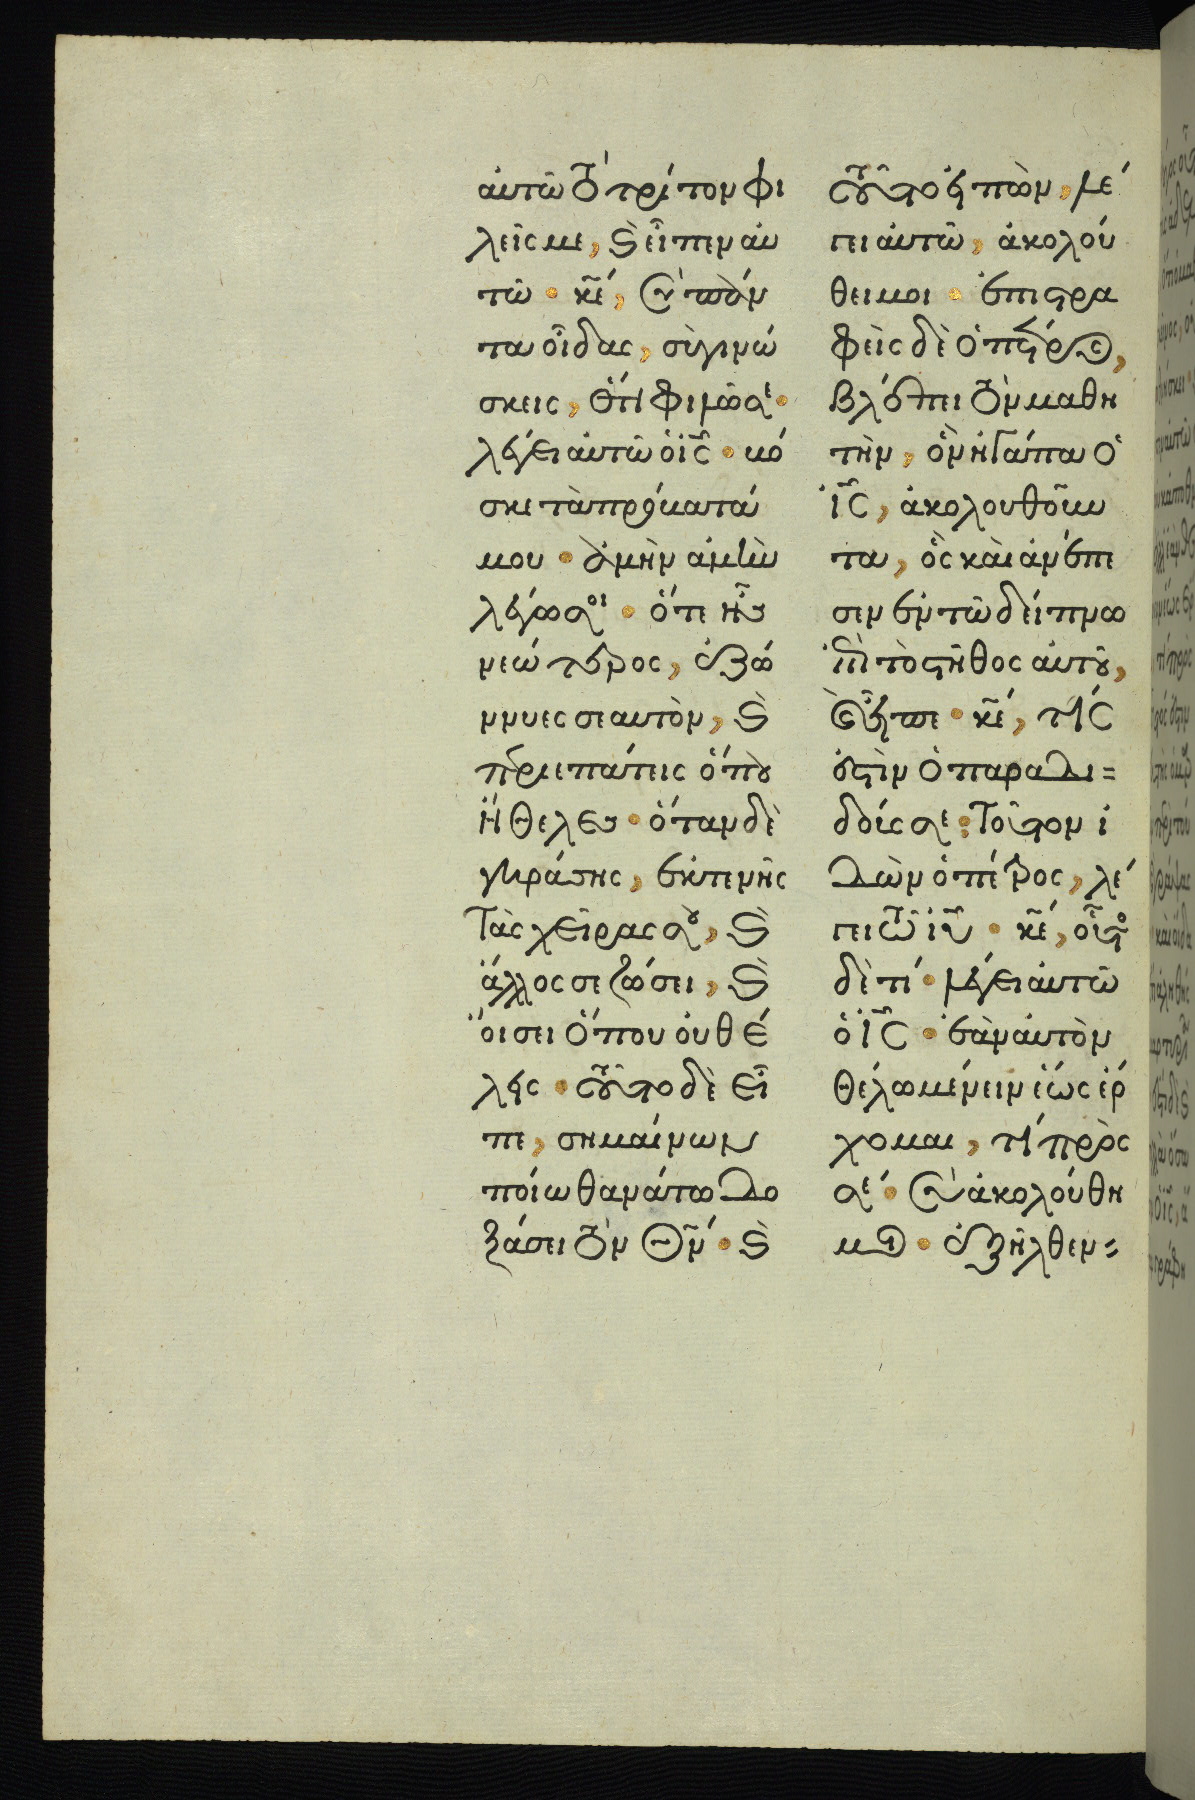 αὐτῶ τὸ τρίτον φι
λεῖς με, καὶ εἶπεν αὐ
τῶ · κε̄, σὺ πάν
τα οἶδας, σὺ γινώ
σκεις, ὅτι φιλῶ σε ·
λέγει αὐτῶ ὁ ις̄ · βό
σκε τὰ πρόβατά
μου · ἀμὴν ἀμὴν
λέγω σοι · ὅτε ἦς
νεώτερος, ἐζώ
ννυες σεαυτὸν, καὶ
περιεπάτεις ὅπου
ἤθελες · ὅταν δὲ
γηράσης, ἐκτενῆς
τὰς χεῖρας σου, καὶ
ἄλλος σε ζώσει, καὶ
οἴσει ὅπου οὐ θέ
λεις · τοῦτο δὲ εἶ
πε, σημαίνων
ποίω θανάτω δο
ξάσει τὸν θν̄ · καὶ
τοῦτο εἰπὼν, λέ
γει αὐτῶ, ἀκολού
θει μοι · ἐπιστρα
φεὶς δὲ ὁ πέτρος,
βλέπει τὸν μαθη
τὴν, ὃν ἠγάπα ὁ
ις̄, ἀκολουθοῦν
τα, ὃς καὶ ἀνέπε
σεν ἐν τῶ δείπνω
ἐπὶ τὸ στῆθος αὐτοῦ,
καὶ εἶπε · κε̄, τίς
ἐστὶν ὁ παραδι=
δούς σε; τοῦτον ἰ
δὼν ὁ πέτρος, λέ
γει τῶ ιῡ · κε̄, οὗτος
δὲ τί · λέγει αὐτῶ
ὁ ις̄ · ἐὰν αὐτὸν
θέλω μένειν ἕως ἔρ
χομαι, τί πρὸς
σέ · σὺ ἀκολούθη
μοι · ἐξῆλθεν=